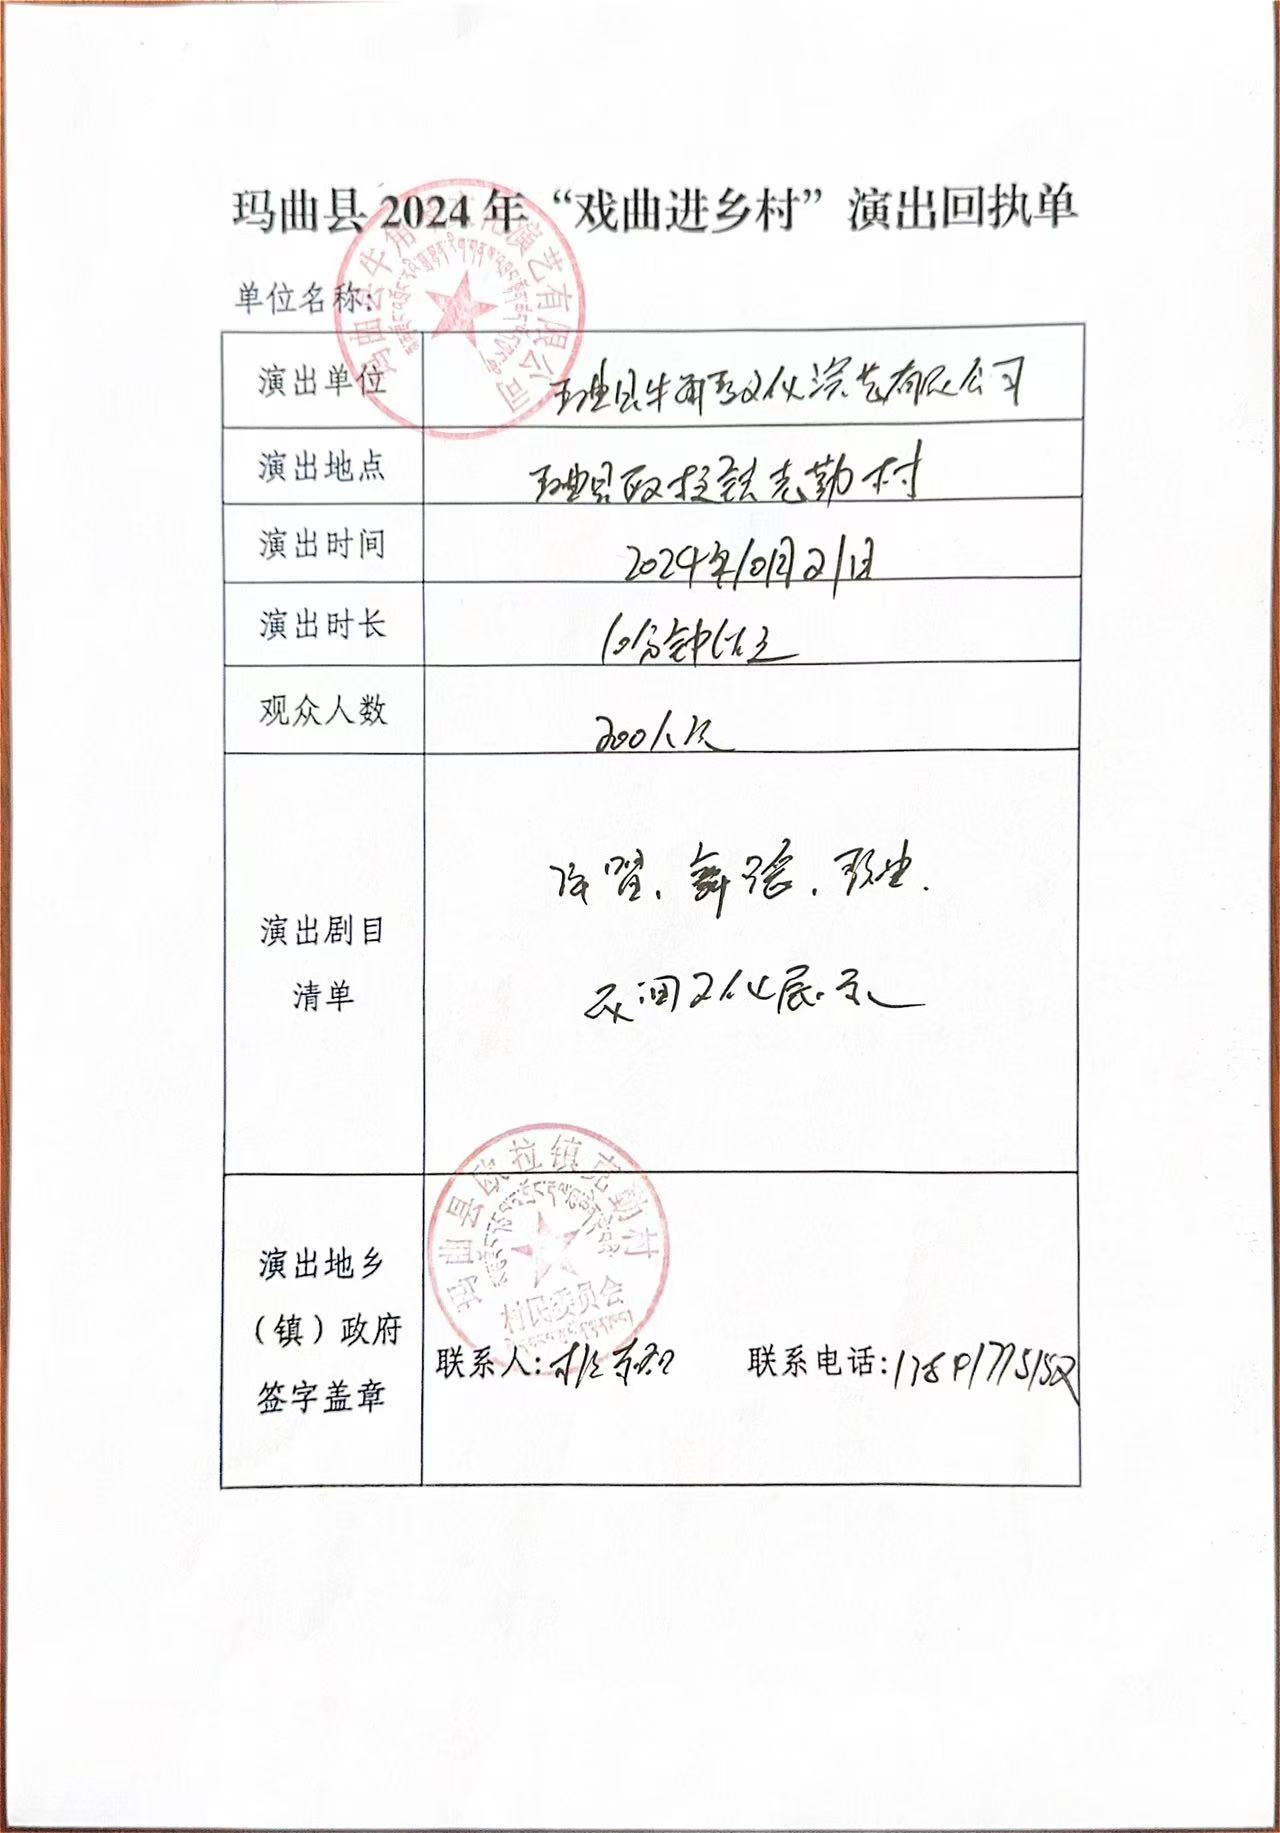 玛曲县2024年“戏曲进乡村”演出回执单
单位名称:
演出单位 玛曲县牛角琴文化演艺有限公司
演出地点 玛曲县欧拉镇克勤村
演出时间 2024年10月21日
演出时长
观众人数 200人次
舞蹈.
演出剧目
清单
民间文化展示
玛曲县欧拉镇克勤村
村民委员会
演出地乡
（镇）政府
签字盖章
联系人: 联系电话: